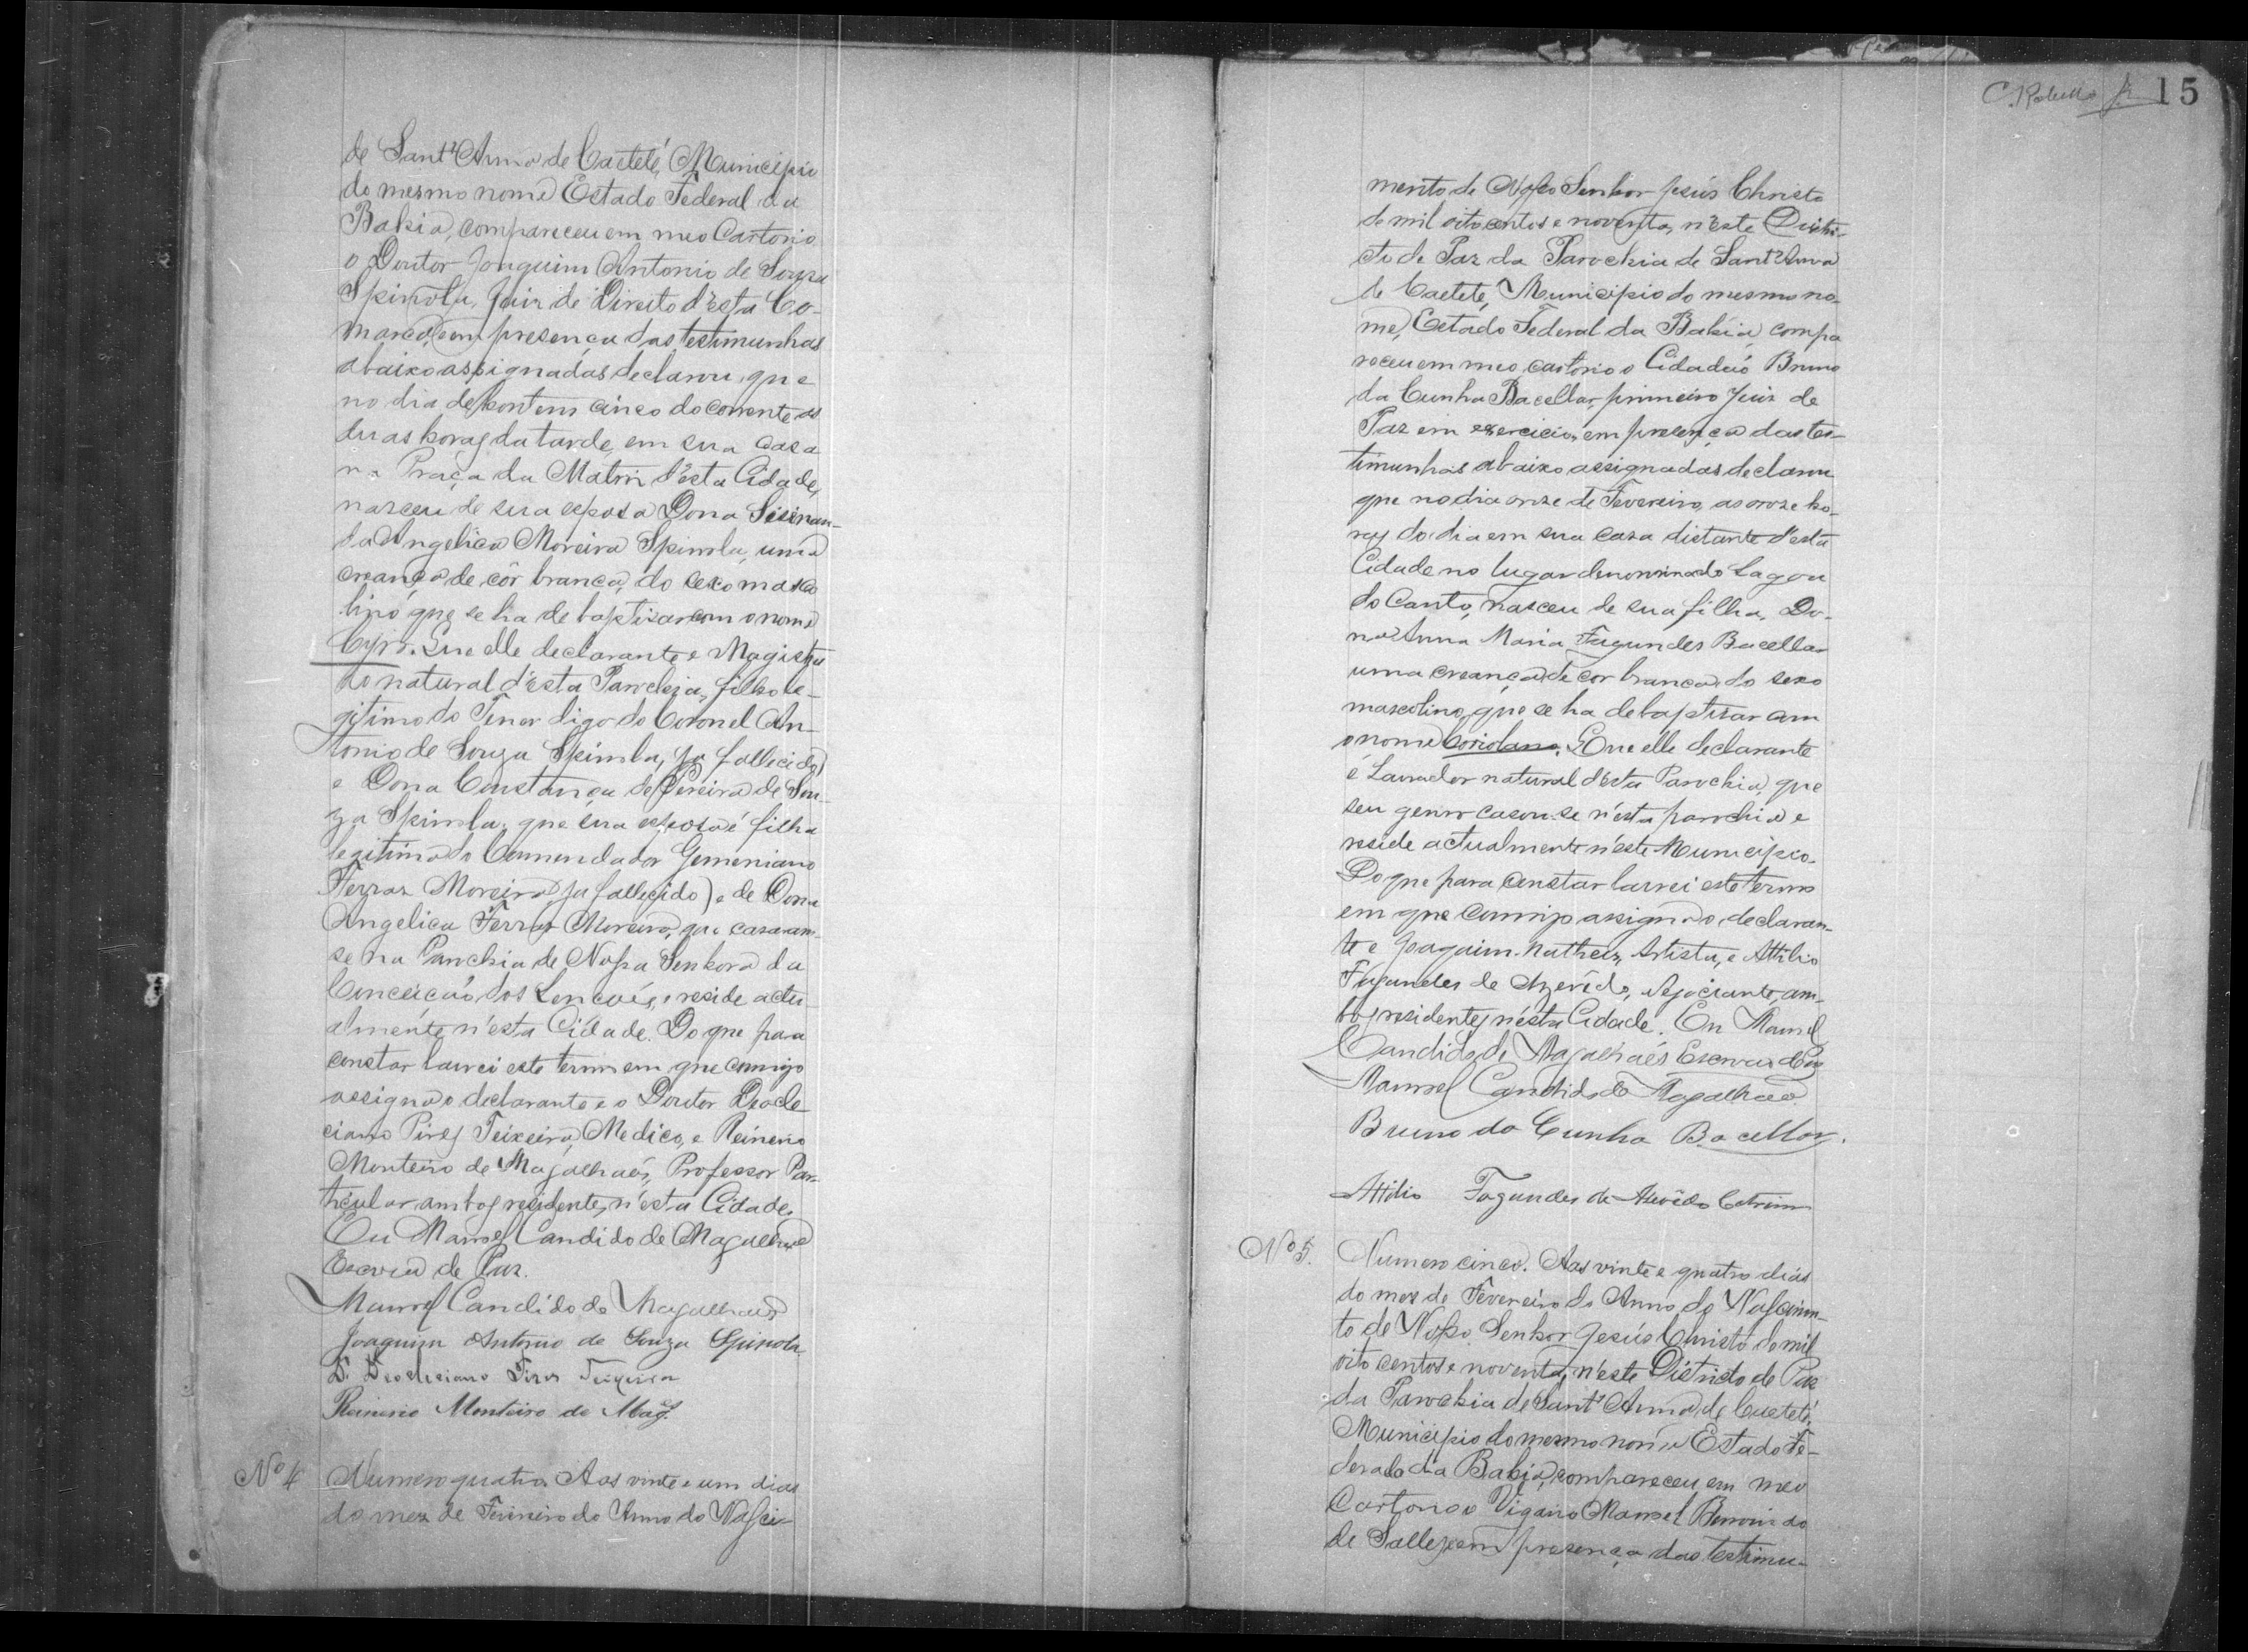 de Sant'Anna de Caeteté, Municipio
do mesmo nome Estado Federal da
Bahia, compareceu em meo Cartorio
o Doutor Joaquim Antonio de Souza
Spinola, Juiz de Direito d'esta Co-
marca, em presença das testimunhas
abaixo assignadas declarou que
no dia de hontem cinco do corrente as
duas horas da tarde, em sua casa
na Praça da Matriz d'esta Cidade,
nasceu de sua esposa Dona Sisinan-
da Angelica Moreira Spinola, uma
creança de côr branca, do sexo mascu
lino que se ha de baptisar com o nome
Cyro. Que elle declarante e Magistra
do natural d'esta Parochia, filho le-
gitimo do Tener digo do Coronel An-
tonio de Souza Spinola, (ja fallecido)
e Dona Constança de Pereira de Sou-
za Spinola, que sua esposa é filha
legitima do Commendador Gemeniano
Ferraz Moreira (ja fallecido) e de Dona
Angelica Ferraz Moreira, que casaram-
se na Parochia de Nossa Senhora da
Conceição dos Lençoés, e reside actu-
almente n'esta Cidade. Do que para
constar lavrei este termo em que comigo
assigna o declarante e o Doutor Deocle-
ciano Pires Teixeira, Medico, e Reinerio
Monteiro de Magalhaés, Professor Par-
ticular ambos residentes n'esta Cidade.
Eu Manoel Candido de Magalhaes
Escrivão de Paz.
Manoel Candido de Magalhaes
Joaquim Antonio de Souza Spinola
Dr. Deocleciano Pires Teixeira
Reinerio Monteiro de Mag.es
Nº 4 Numero quatro. Aos vinte e um dias
do mez de Fevereiro do Anno do Nasci-
15
mento de Nosso Senhor Jesús Christo
de mil oitocentos e noventa, n'este Distri-
cto de Paz da Parochia de Sant'Anna
de Caeteté, Municipio do mesmo no-
me, Estado Federal da Bahia, compa
receu em meo cartorio o Cidadáo Bruno
da Cunha Bacellar, primeiro Juiz de
Paz em exercicio, em presença das tes-
timunhas abaixo assignadas declarou
que no dia onze de Fevereiro, as onze ho-
ras do dia em sua casa distante d'esta
Cidade no lugar denominado Lagoa
do Canto, nasceu de sua filha, Do-
na Anna Maria Fagundes Bacellar
uma creança de cor branca do sexo
mascolino, que se ha de baptisar com
o nome Coriolano. Que elle declarante
é Lavrador natural d'esta Parochia, que
seu genro casou-se n'esta parochia e
reside actualmente n'este Municipio.
Do que para constar lavrei este termo
em que comigo assigna o declaran-
te e Joaquim Matheis, Artista, e Attilio
Fagundes de Azevêdo, Negociante, am-
bos residentes n'esta Cidade. Eu Manoel
Candido de Magalhaés Escrivão de Paz
Manoel Candido de Magalhaes
Bruno da Cunha Bacellar.
Attilio Fagundes de Azevêdo Cotrim
Nº 5. Numero cinco. Aos vinte e quatro dias
do mez de Fevereiro do Anno do Nascimen-
to de Nosso Senhor Jesús Christo de mil
oito centos e noventa, n'este Districto de Paz
da Parochia de Sant'Anna de Caeteté,
Municipio do mesmo nome Estado Fe-
deral da Bahia, compareceu em meo
Cartorio o Vigario Manoel Benvindo
de Salles, em presença das testimu-